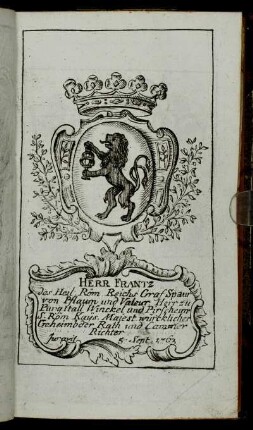 HERR FRANTZ
des Heil. Röm. Reichs Graf Spaur
von Pflaum und Valeur, Herr zu
Burgstall Winckel und
Röm. Kays. Majest. würcklicher
Geheimbder Rath und Cammer
Richter
juravit 5. Sept. 1763